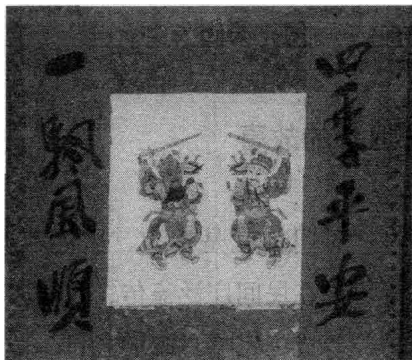 四季平安
一颿風順